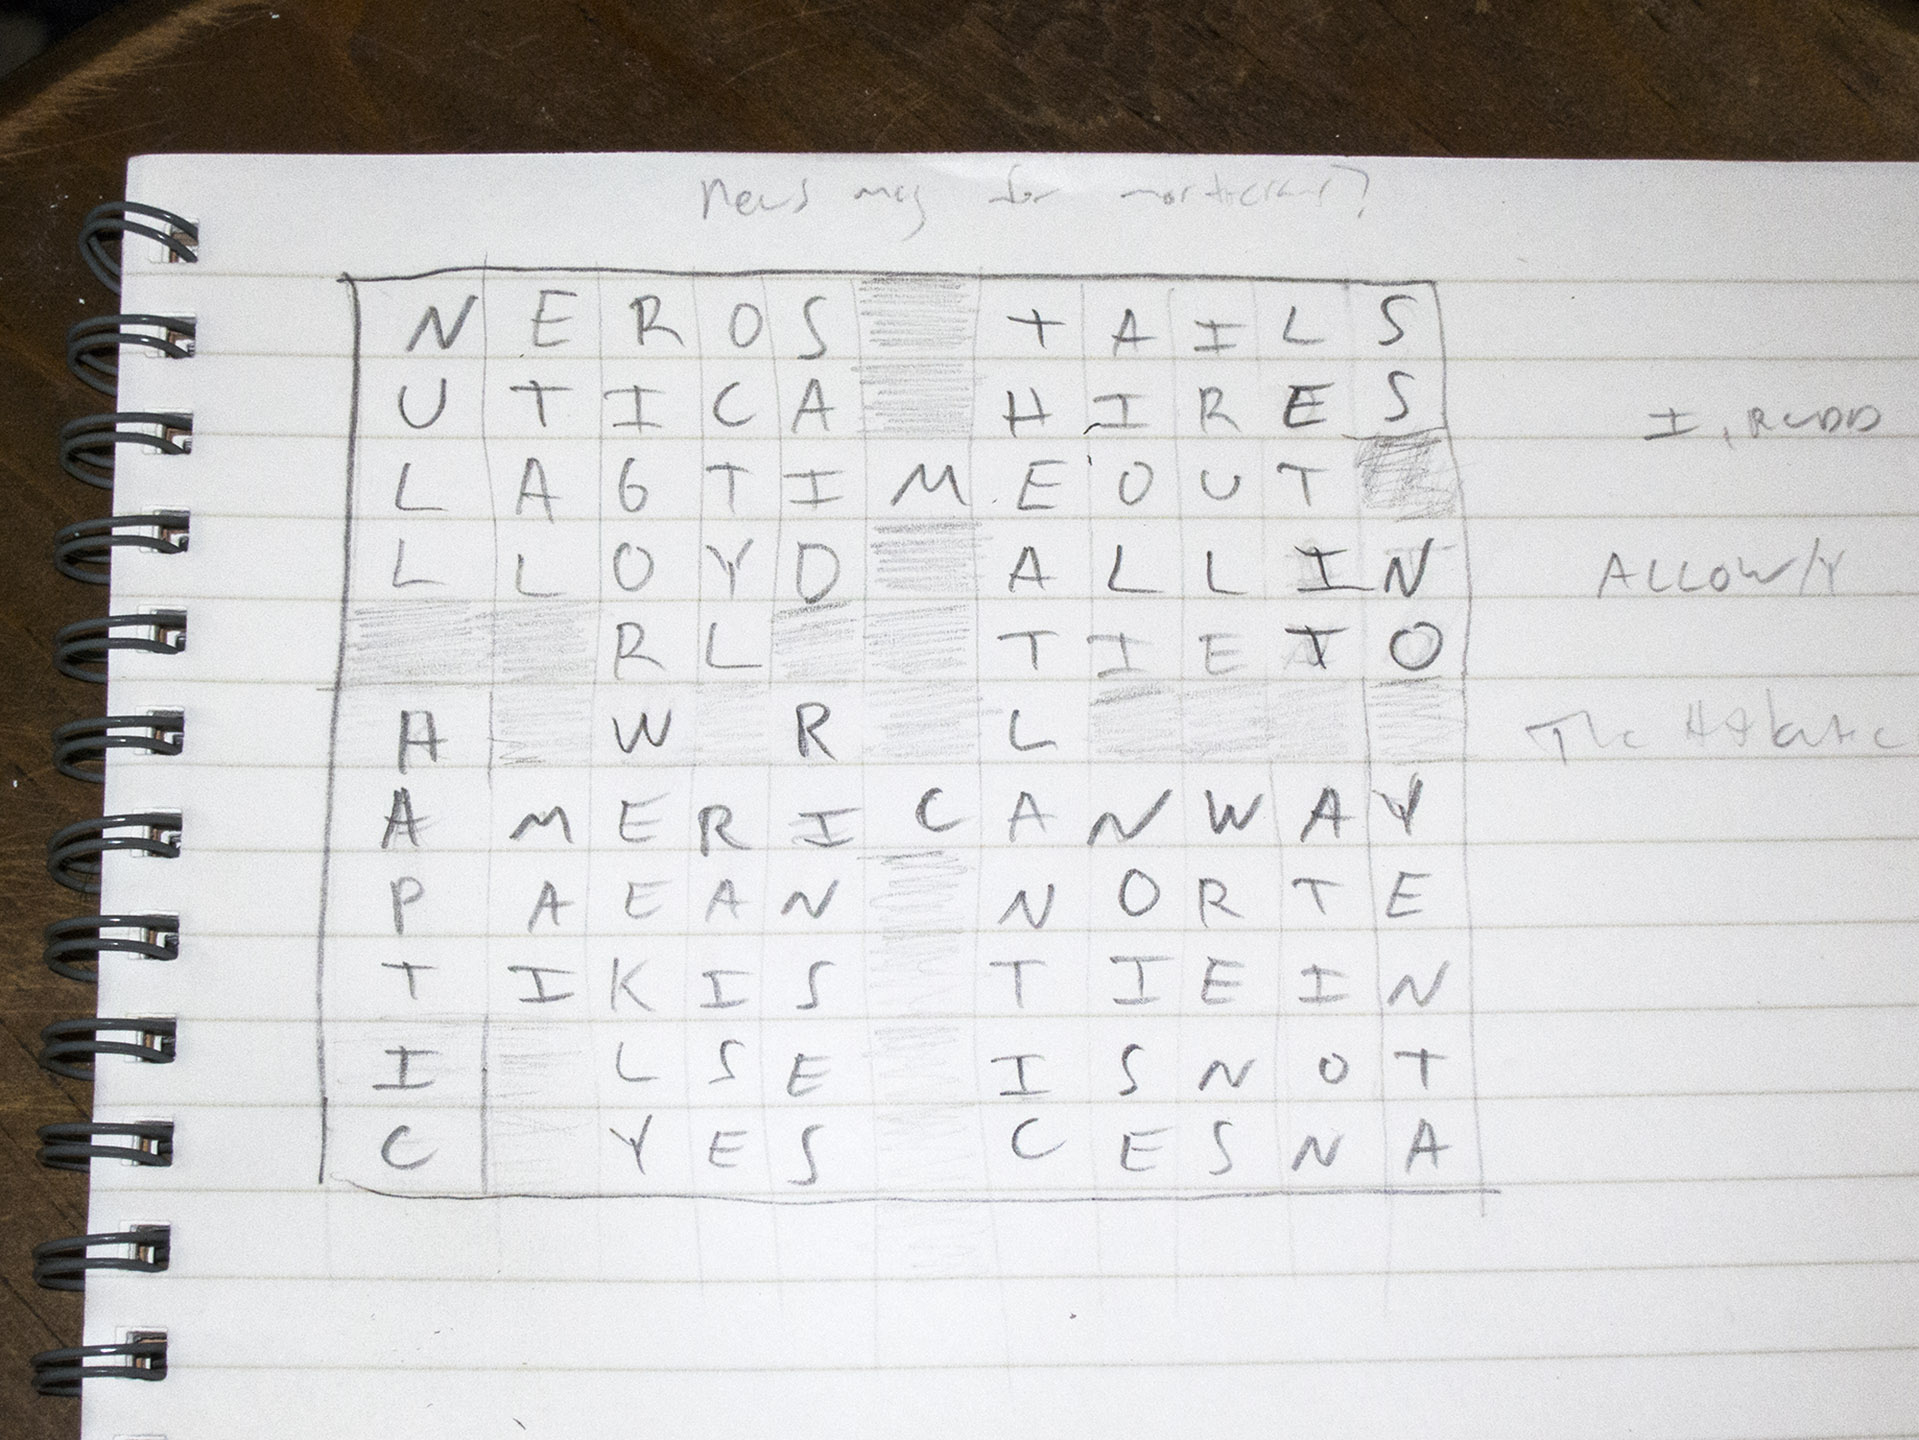 News mag for morticians?
N E R O S T A I L S
U T I C A H I R E S
I, RUDD
L A G T I M E O U T
L L O Y D A L L I N
ALLOW/Y
R L T I E T O
A W R L
The Atlantic
A M E R I C A N W A Y
P A E A N N O R T E
T I K I S T I E I N
I L S E I S N O T
C Y E S C E S N A